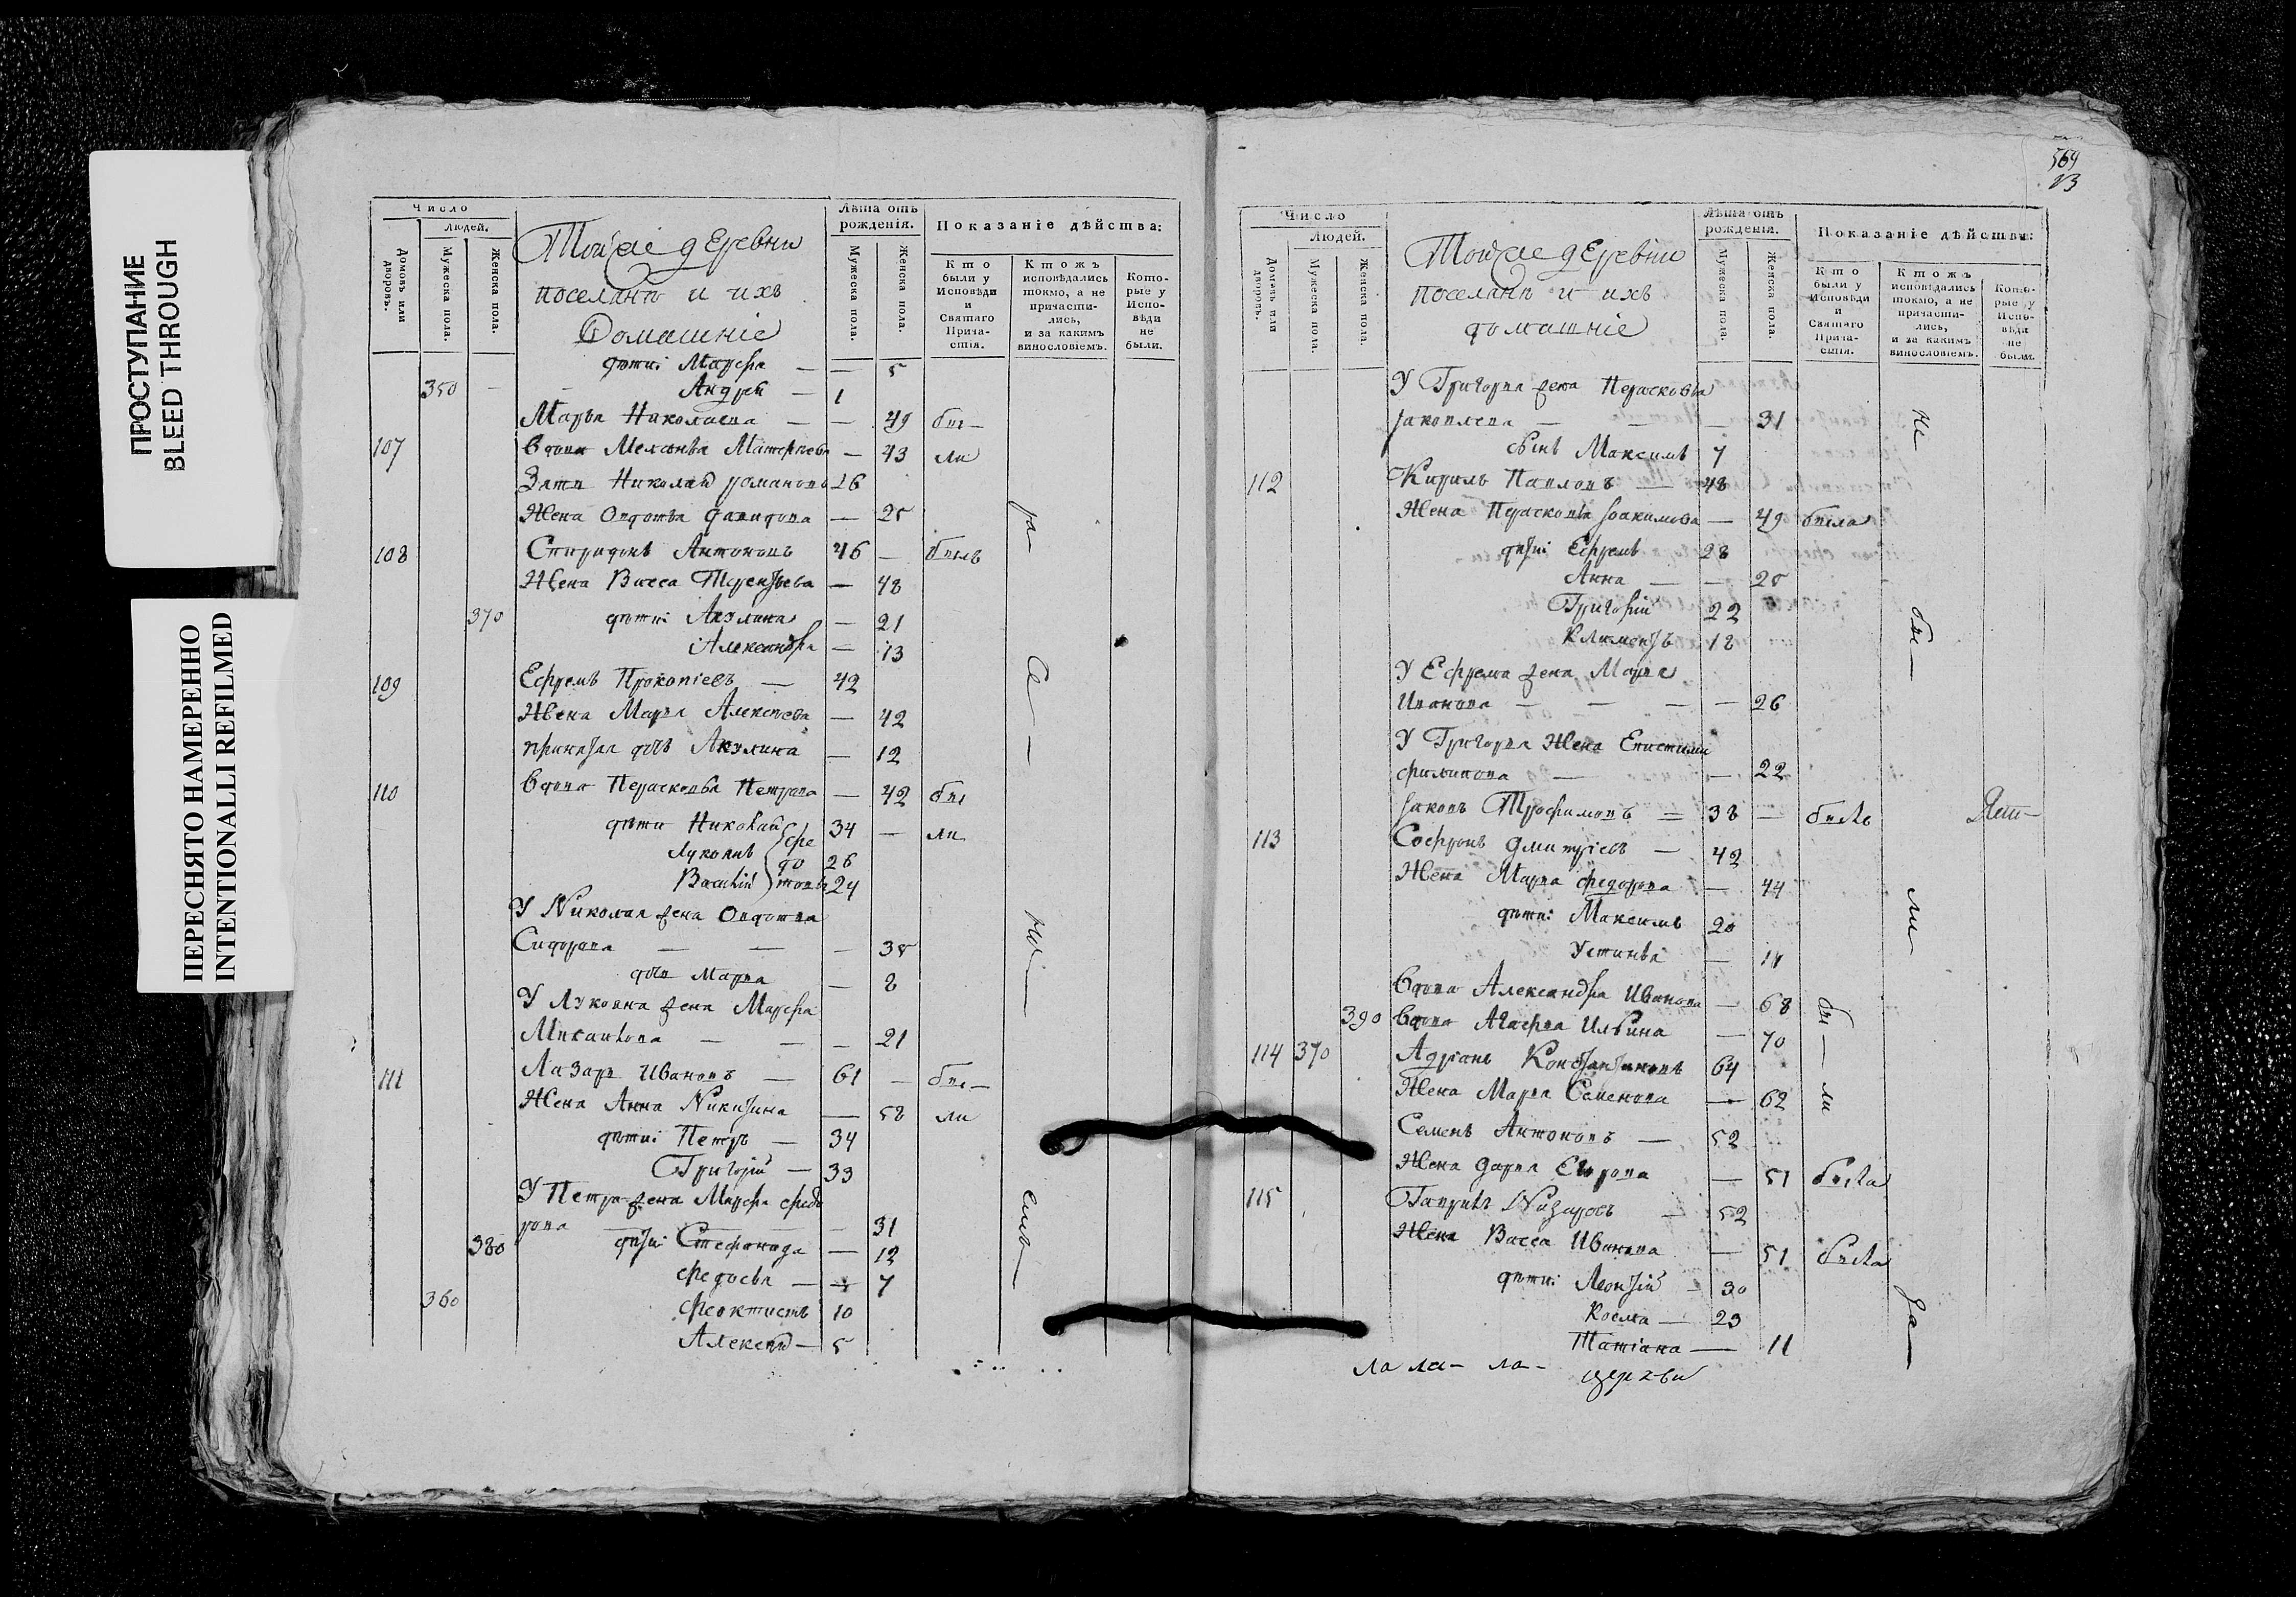 ПРОСТУПАНИЕ
BLEED THROUGH
ПЕРЕСНЯТО НАМЕРЕННО
INTENTIONALLI REFILMED
Число
Людей.
Домовъ или дворовъ.
Мужеска пола.
Женска пола.
Тойже деревни
поселянъ и ихъ
Домашніе
Лѣта отъ рожденія.
Мужеска пола.
Женска пола.
Показаніе дѣйства:
Кто были у Исповѣди и Святаго Прича-стія.
Ктожъ исповѣдались токмо, а не причасти-лись, и за какимъ винословіемъ.
Кото-рые у Испо-вѣди не были.
дѣти: Марѳа — — 5
350 — Андрей — 1
Марья Николаева — — 49 бы-
107 Вдова Меланья Матвѣева — 43 ли
Зять Николай романовъ 26
Жена Овдотья давидова — 25
108 Спиридонъ Антоновъ 46 — былъ
Жена Васса Терентьева — 48
370 дѣти: Акулина — 21
Александра — 13
109 Ефремъ Прокопіевъ — 42
Жена Марья Алексѣева — 42
дочь Акулина — 12
110 Вдова Перасковья Петрова — 42 бы
дѣти Николай 34 — ли
Лукоянъ 26
Василій 24
У Николая жена Овдотья
Сидорова — — — 35
дочь Марья — 8
У Лукояна жена Марѳа
Михайлова — — — 21
111 Лазарь Ивановъ — 61 — бы-
Жена Анна Никитина — 58 ли
дѣти: Петръ — 34
Григорій — 33
У Петра жена Марѳа федо
рова — 31
380 дѣти: Стефанида — 12
федосья — 7
360 феоктистъ 10
Алексѣй — 5
569
Число
Людей.
Домовъ или дворовъ.
Мужеска пола.
Женска пола.
Тойже деревни
поселянъ и ихъ
домашніе
Лѣта отъ рожденія.
Мужеска пола.
Женска пола.
Показаніе дѣйства:
Кто были у Исповѣди и Святаго Прича-стія.
Ктожъ исповѣдались токмо, а не причасти-лись, и за какимъ винословіемъ.
Кото-рые у Испо-вѣди не были.
У Григорья жена Перасковья
Яковлева — — — 31
сынъ Максимъ 7
не
112 Кирилъ Павловъ — 48
Жена Перасковья Іоакимова — 49 была
дѣти: Ефремъ 28
Анна — — 20
Григорій 22
Климентъ 18
бы —
У Ефрема жена Марья
Иванова — — — — 26
У Григорья Жена Епистимия
филипова — — 22
Яковъ Трофимовъ — 38 — былъ
113 Софронъ дмитріевъ — 42
Жена Марья федорова — 44
дѣти: Максимъ 20
Устинья —
ли
Вдова Александра Иванова — 68 бы —
390 Вдова Агафья Ильина — 70
114 370 Адріанъ Константиновъ 64
Жена Марья Семенова — 62 ли
Семенъ Антоновъ — 52
Жена дарья — 51 была
115 Гаврилъ Назаровъ — 52
Жена Васса Иванова — 51 была
дѣти: Леонтій — 30
Козма — 23
Татіана — 11
за —
ла ла- ла-
церкви